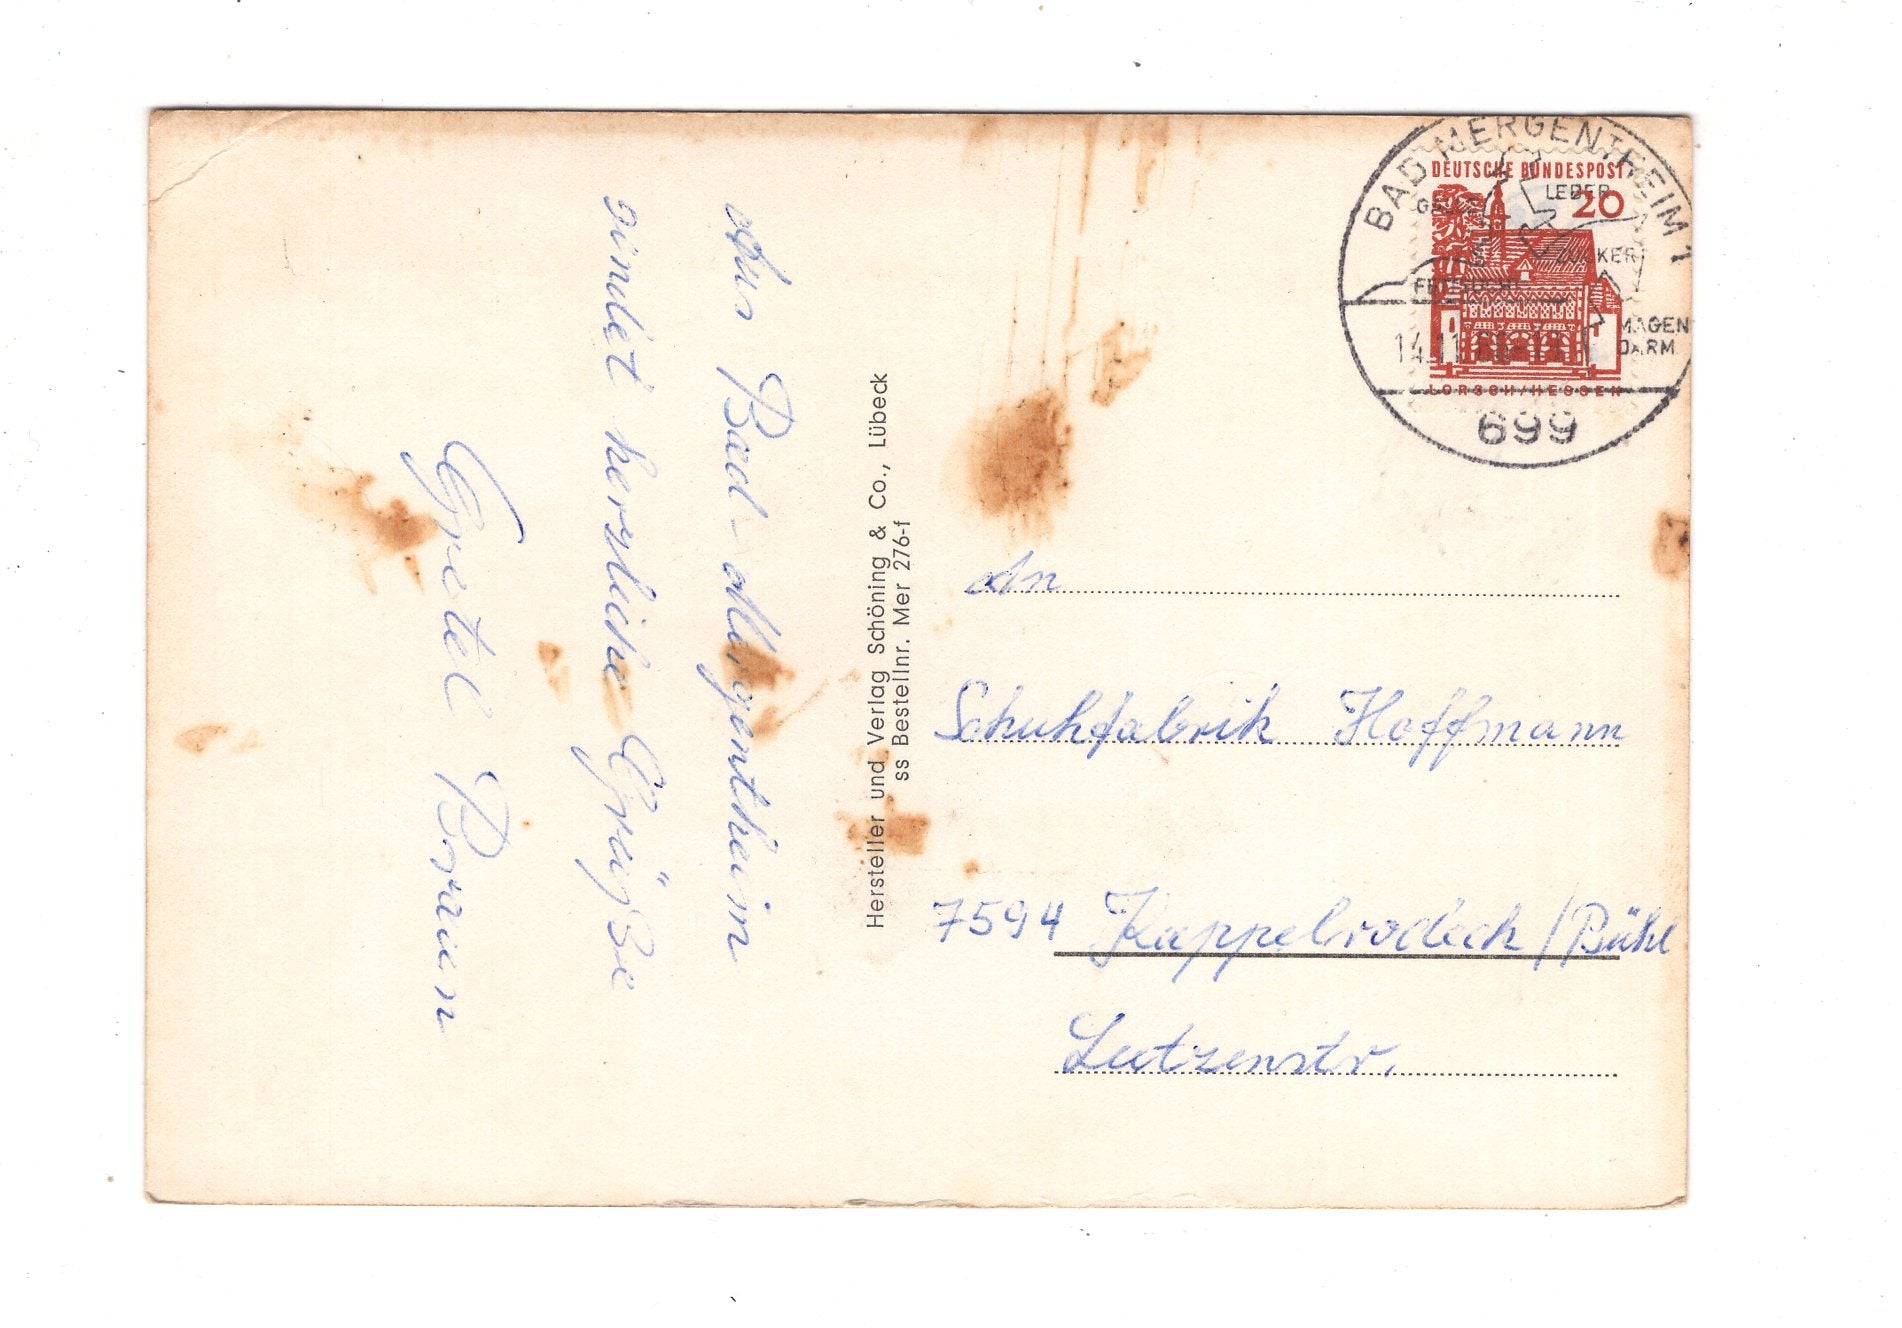 Aus Bad-Mergentheim
sindet herzliche Grüße
Gretel Braun
Hersteller und Verlag Schöning & Co., Lübeck
ss Bestellnr. Mer 276-f
BAD MERGENTHEIM 1
DEUTSCHE BUNDESPOST
LEBER
20
ZUCKER
MAGEN
DARM
14.11
LORSCH/HESSEN
699
An
Schuhfabrik Hoffmann
7594 Kappelrodeck/Bühl
Lutzenstr.